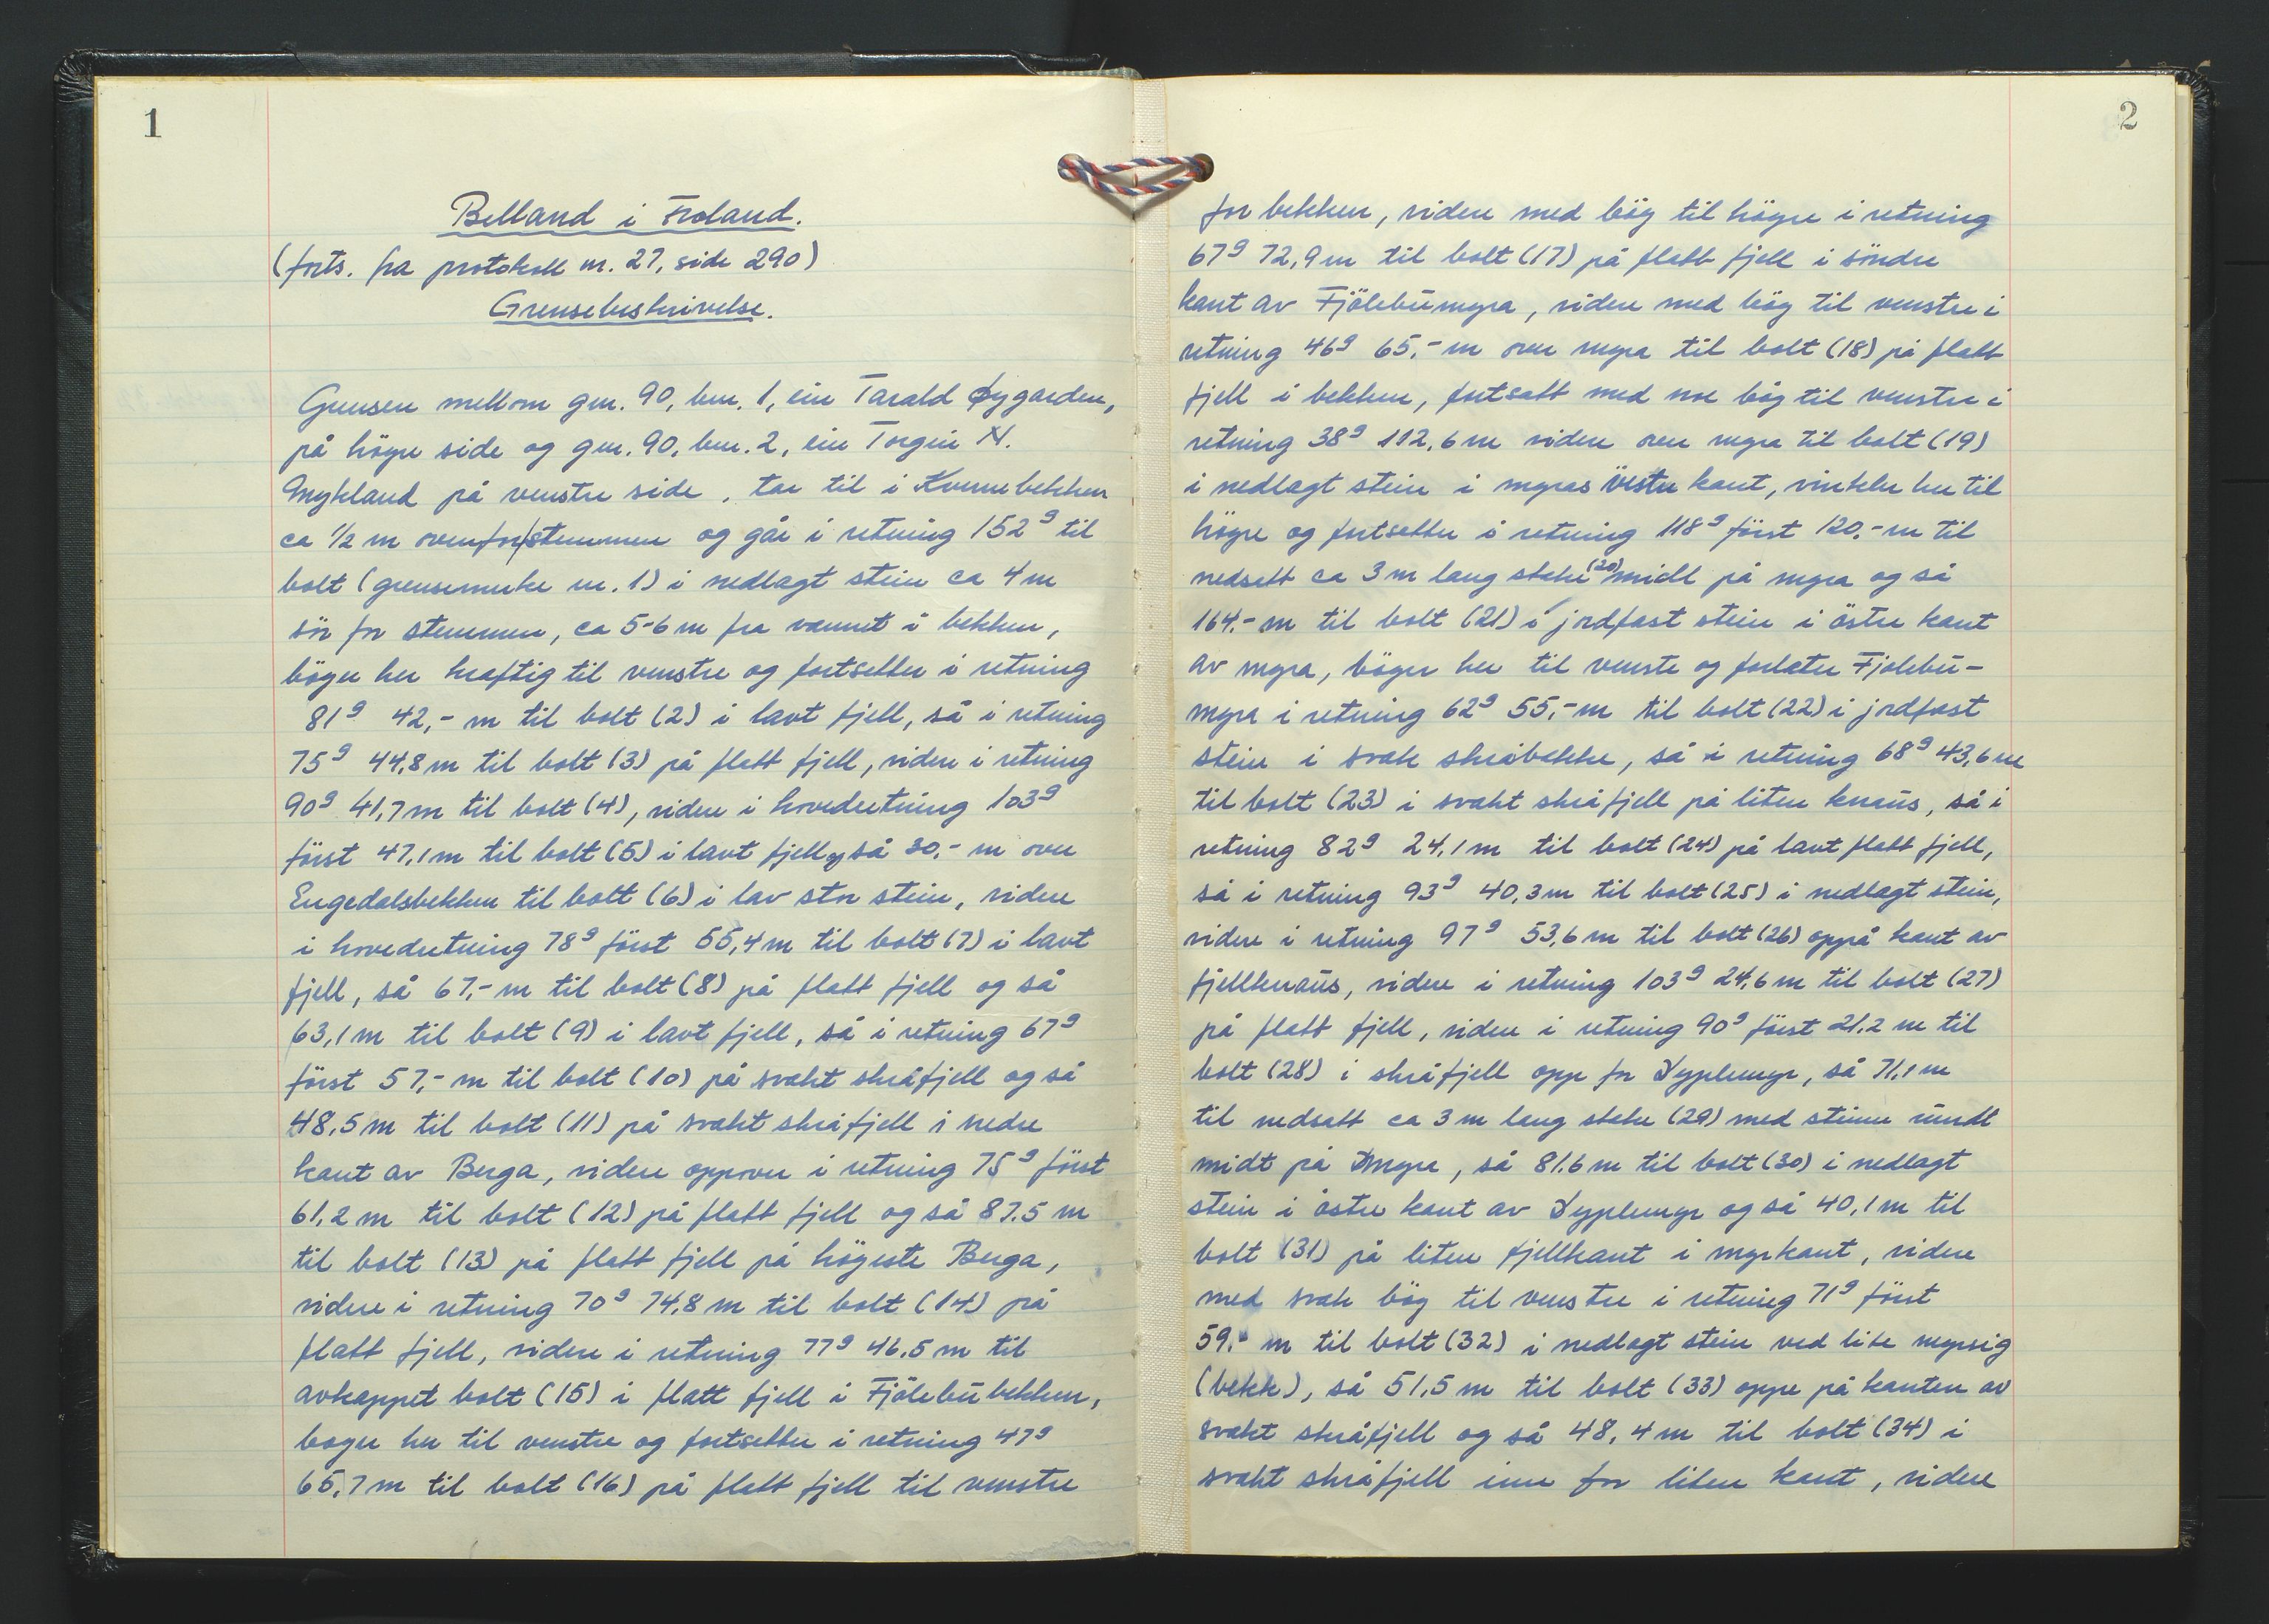 1
Belland i Froland.
(forts. fra protokoll nr. 27, side 290)
Grensebeskrivelse.
Grensen mellom gnr. 90, bnr. 1, eier Tarald Øygarden,
på högre side og gnr. 90, bnr. 2, eier Torgeir N.
Mykland på venstre side, tar til i Kvernebekken
ca 1/2 m ovenfor stemmen og går i retning 152g til
bolt (grensemerke nr. 1) i nedlagt stein ca 4 m
sör for stemmen, ca 5-6 m fra vannet i bekken,
böger her kraftig til venstre og fortsetter i retning
81g 42,- m til bolt (2) i lavt fjell, så i retning
75g 44,8 m til bolt (3) på flatt fjell, videre i retning
90g 41,7 m til bolt (4), videre i hovedretning 103g
först 47,1 m til bolt (5) i lavt fjell og så 30,- m over
Engedalsbekken til bolt (6) i lav stor stein, videre
i hovedretning 78g först 55,4 m til bolt (7) i lavt
fjell, så 67,- m til bolt (8) på flatt fjell og så
63,1 m til bolt (9) i lavt fjell, så i retning 67g
först 57,- m til bolt (10) på svakt skråfjell og så
48,5 m til bolt (11) på svakt skråfjell i nedre
kant av Berga, videre oppover i retning 75g först
61,2 m til bolt (12) på flatt fjell og så 87,5 m
til bolt (13) på flatt fjell på högeste Berga,
videre i retning 70g 74,8 m til bolt (14) på
flatt fjell, videre i retning 77g 46,5 m til
avkappet bolt (15) i flatt fjell i Fjölebubekken,
boger her til venstre og fortsetter i retning 47g
65,7 m til bolt (16) på flatt fjell til venstre
2
for bekken, videre med bög til högre i retning
67g 72,9 m til bolt (17) på flatt fjell i söndre
kant av Fjölebumyra, videre med bög til venstre i
retning 46g 65,- m over myra til bolt (18) på flatt
fjell i bekken, fortsatt med noe bög til venstre i
retning 38g 112,6 m videre over myra til bolt (19)
i nedlagt stein i myras vestre kant, vinkler her til
högre og fortsetter i retning 118g först 120,- m til
nedsatt ca 3 m lang stake (20) midt på myra og så
164,- m til bolt (21) i jordfast stein i östre kant
av myra, böger her til venste og forlater Fjolebu-
myra i retning 62g 55,- m til bolt (22) i jordfast
stein i svak skråbakke, så i retning 68g 43,6 m
til bolt (23) i svakt skråfjell på liten knaus, så i
retning 82g 24,1 m til bolt (24) på lavt flatt fjell,
så i retning 93g 40,3 m til bolt (25) i nedlagt stein,
videre i retning 97g 53,6 m til bolt (26) oppå kant av
fjellknaus, videre i retning 103g 24,6 m til bolt (27)
på flatt fjell, videre i retning 90g först 21,2 m til
bolt (28) i skråfjell opp for så 71,1 m
til nedsatt ca 3 m lang stake (29) med steiner rundt
midt på myra, så 81,6 m til bolt (30) i nedlagt
stein i östre kant av og så 40,1 m til
bolt (31) på liten fjellkant i myrkant, videre
med svak bög til venstre i retning 71g först
59,- m til bolt (32) i nedlagt stein ved lite myrsig
(bekk), så 51,5 m til bolt (33) oppe på kanten av
svakt skråfjell og så 48,4 m til bolt (34) i
svakt skråfjell inne for liten kant, videre